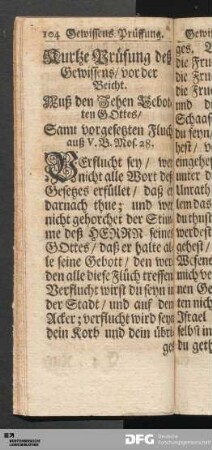 104 Gewissens Prüffung.
Kurtze Prüfung deß
Gewissens/ vor der
Beicht.
Auß den Zehen Gebot-
ten GOttes/
Samt vorgesetzten Fluch
auß V. B. Mos. 28.
VErflucht sey/ wer
nicht alle Wort deß
Gesetzes erfüllet/ daß er
darnach thue; und wer
nicht gehorchet der Stim-
me deß HERRN seines
GOttes/ daß er halte al-
le seine Gebott/ den wer-
den alle diese Flüch treffen
Verflucht wirst du seyn in
der Stadt/ und auf dem
Acker; verflucht wird seyn
dein Korb und dein übri-
ges
Gewi
ges,
die Fru
die Fru
die
und
Schaaf
du seyn
hest/
eingehe
unter d
Unrath
dem
du thust
werdest
gehest/
Wesens
mich ve
nen Ge
ten nich
Israel
selbst in
du geth
DFG
Deutsche
Forschungsgemeinschaft